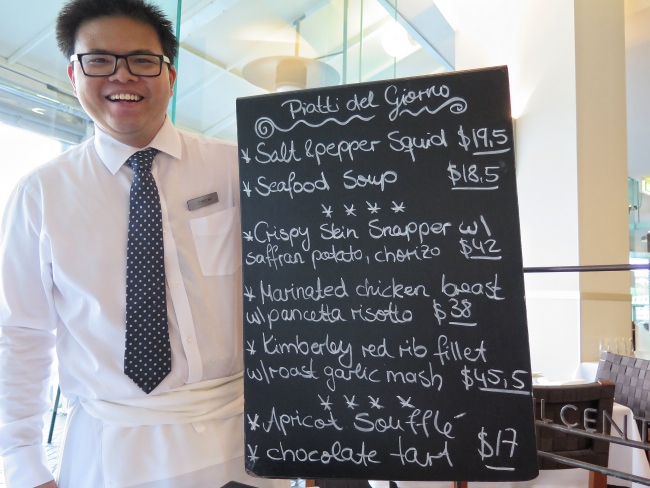 Piatti del Giorno
* Salt & pepper Squid $19,5
* Seafood Soup $18,5
* * * *
* Crispy Skin Snapper w/
saffran potato, chorizo $42
* Marinated chicken breast
w/ pancetta risotto $38
* Kimberley red rib fillet
w/ roast garlic mash $45,5
* * * *
* Apricot Soufflé
* chocolate tart $17
CENT